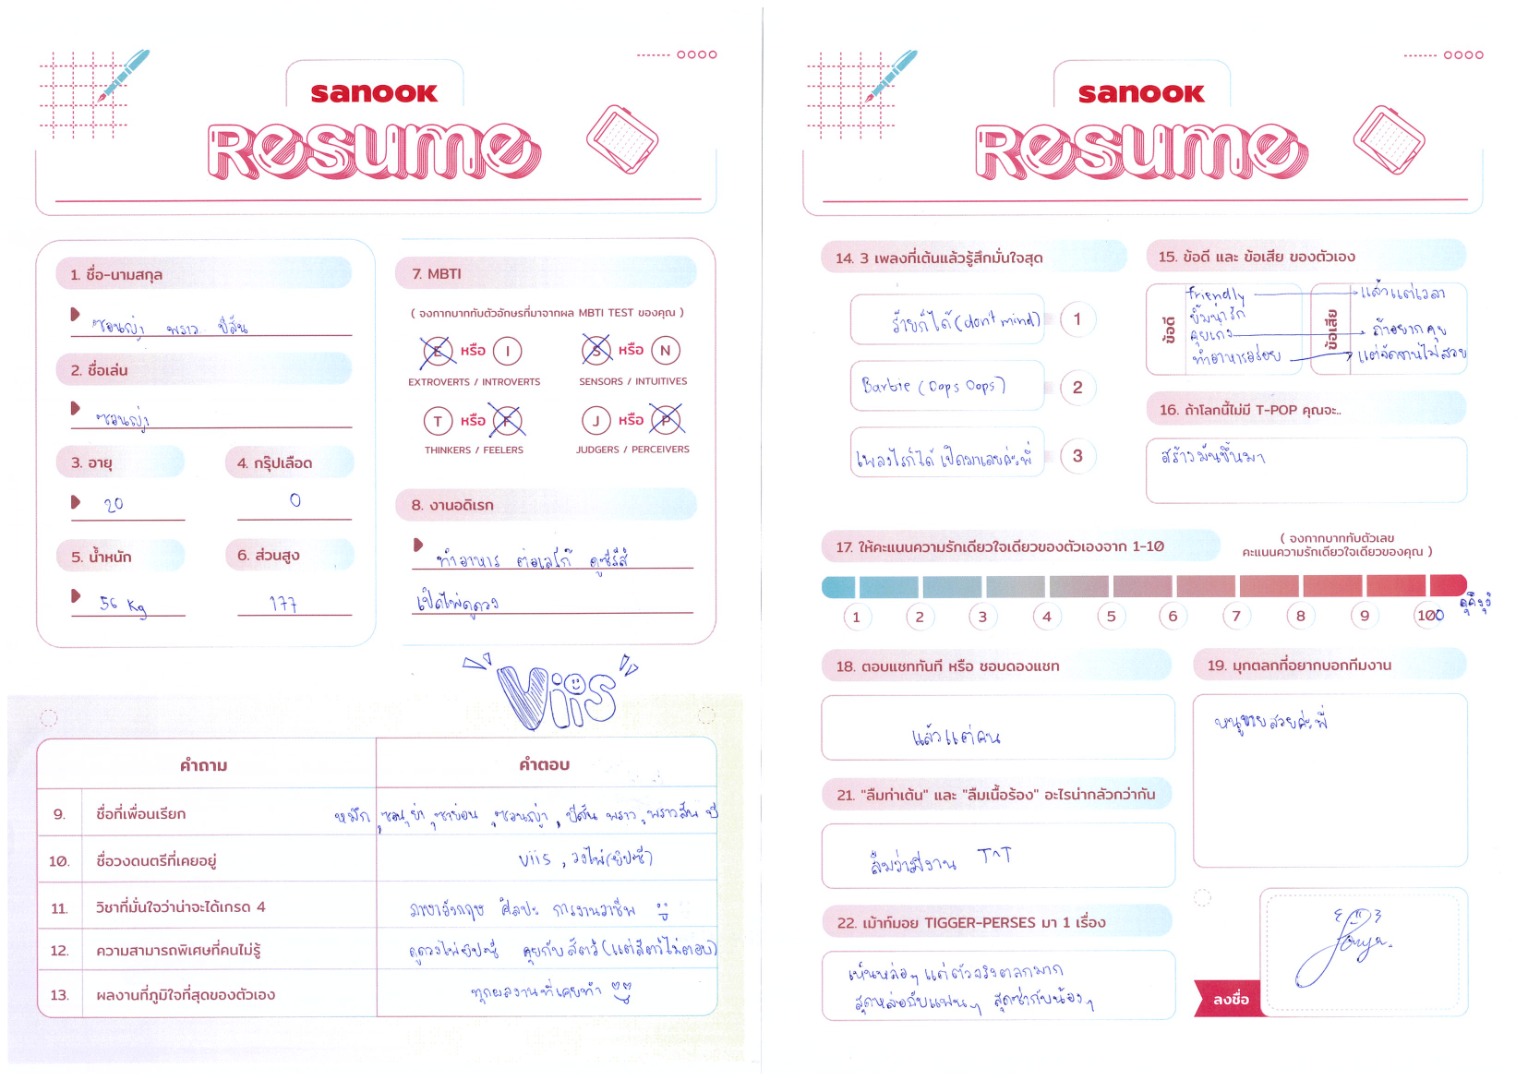 sanook
Resume
1. ชื่อ-นามสกุล
ซอนญ่า พราว ปีสัน
2. ชื่อเล่น
ซอนญ่า
3. อายุ
20
4. กรุ๊ปเลือด
O
5. น้ำหนัก
56 Kg
6. ส่วนสูง
177
7. MBTI
( จงกากบาททับตัวอักษรที่มาจากผล MBTI TEST ของคุณ )
E หรือ I
S หรือ N
EXTROVERTS / INTROVERTS
SENSORS / INTUITIVES
T หรือ F
J หรือ P
THINKERS / FEELERS
JUDGERS / PERCEIVERS
8. งานอดิเรก
ทำอาหาร ต่อเลโก้ ดูซีรีส์
เปิดไพ่ดูดวง
Viis
คำถาม
คำตอบ
9. ชื่อที่เพื่อนเรียก
หมึก ซอนญ่า, ปีสัน พราว, พราวสัน ปี
10. ชื่อวงดนตรีที่เคยอยู่
viis , วงไพ่(ยิปซี)
11. วิชาที่มั่นใจว่าน่าจะได้เกรด 4
ภาษาอังกฤษ ศิลปะ การงานอาชีพ
12. ความสามารถพิเศษที่คนไม่รู้
ดูดวงไพ่ยิปซี คุยกับสัตว์ (แต่สัตว์ไม่ตอบ)
13. ผลงานที่ภูมิใจที่สุดของตัวเอง
ทุกผลงานที่เคยทำ
sanook
Resume
14. 3 เพลงที่เต้นแล้วรู้สึกมั่นใจสุด
ร้ายก็ได้ (don't mind)
1
Barbie (Oops Oops)
2
เพลงไรก็ได้ เปิดมาเลยค่ะพี่
3
15. ข้อดี และ ข้อเสีย ของตัวเอง
ข้อดี
friendly
ยิ้มน่ารัก
คุยเก่ง
ทำอาหารอร่อย
ข้อเสีย
แล้วแต่เวลา
ถ้าอยากคุย
แต่จัดจานไม่สวย
16. ถ้าโลกนี้ไม่มี T-POP คุณจะ..
สร้างมันขึ้นมา
17. ให้คะแนนความรักเดียวใจเดียวของตัวเองจาก 1-10
( จงกากบาททับตัวเลข
คะแนนความรักเดียวใจเดียวของคุณ )
1 2 3 4 5 6 7 8 9 100
18. ตอบแชททันที หรือ ชอบดองแชท
แล้วแต่คน
19. มุกตลกที่อยากบอกทีมงาน
หนูขายสวยค่ะพี่
21. "ลืมท่าเต้น" และ "ลืมเนื้อร้อง" อะไรน่ากลัวกว่ากัน
ลืมว่ามีงาน T^T
22. เม้าท์มอย TIGGER-PERSES มา 1 เรื่อง
เห็นหล่อๆ แต่ตัวจริงตลกมาก
สุดหล่อกับแฟนๆ สุดซ่ากับน้องๆ
ลงชื่อ
Sonya